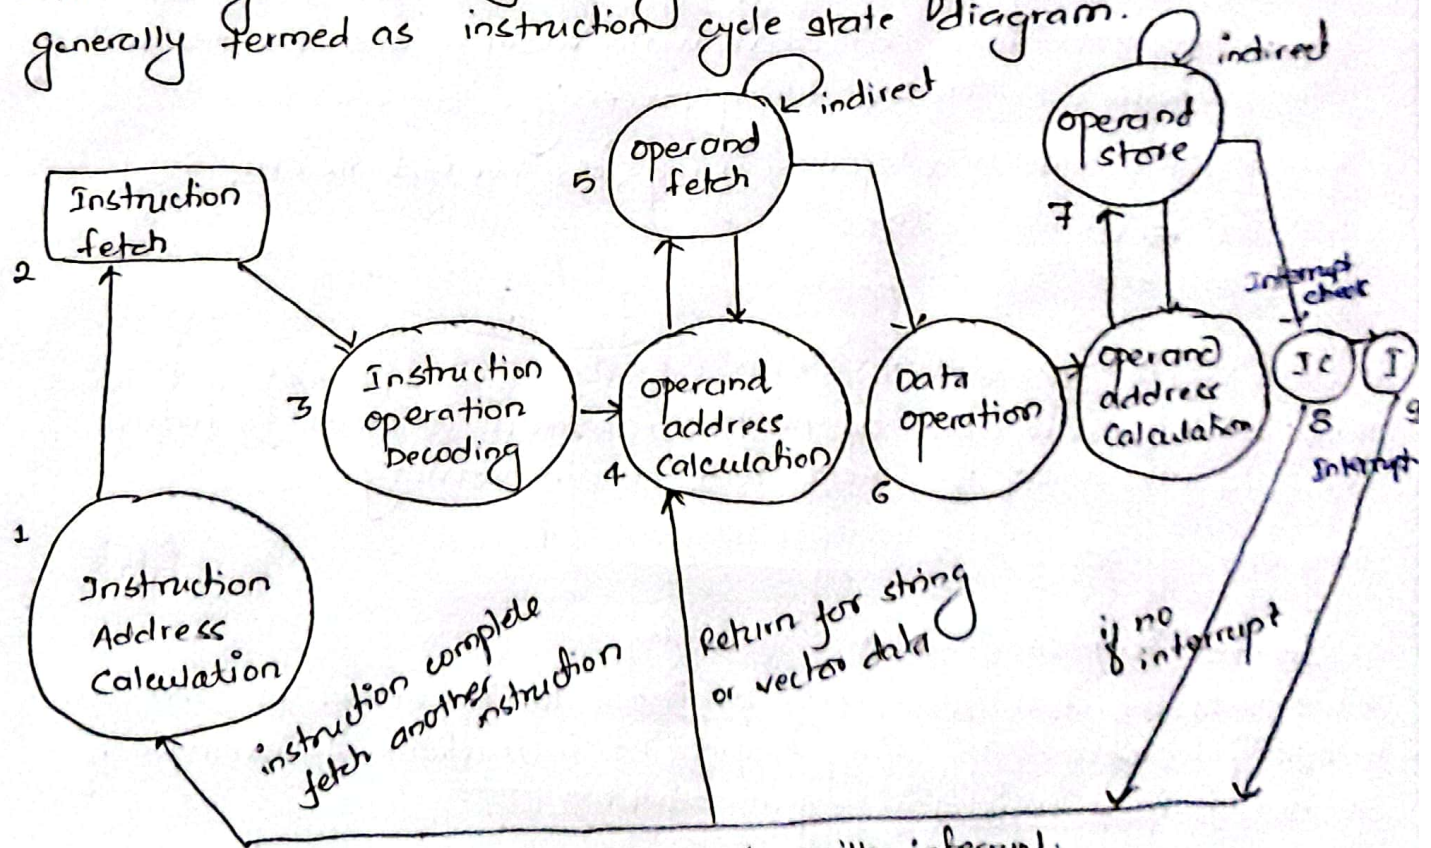 generally termed as instruction cycle state diagram.
indirect
indirect
operand
fetch
5
operand
store
7
Instruction
fetch
2
Interrupt
check
3
Instruction
operation
Decoding
operand
address
calculation
4
Data
operation
6
operand
address
calculation
IC
8
I
9
Interrupt
1
Instruction
Address
Calculation
instruction complete
fetch another
instruction
Return for string
or vector data
if no
interrupt
interrupt.